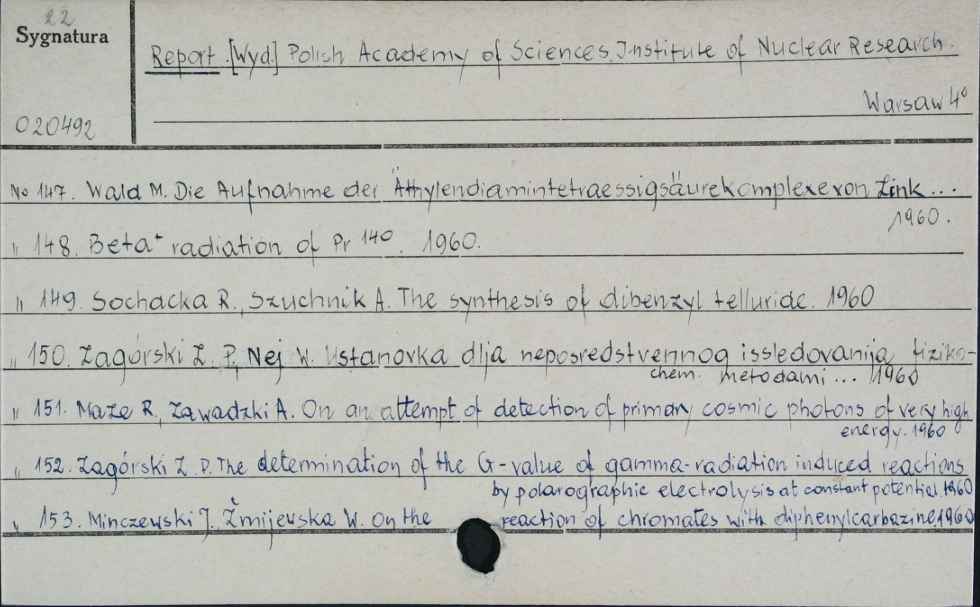 22
Sygnatura
020492
Report. [Wyd.] Polish Academy of Sciences, Institute of Nuclear Research.
Warsaw 4°
No 147. Wald M. Die Aufnahme der Äthylendiamintetraessigsäurekomplexe von Zink...
1960.
" 148. Beta⁺ radiation of Pr 140. 1960.
" 149. Sochacka R., Szuchnik A. The synthesis of dibenzyl telluride. 1960
" 150. Zagórski Z. P., Nej W. Ustanovka dlja neposredstvennog issledovanija fiziko-
chem. metodami... 1960
" 151. Maze R., Zawadzki A. On an attempt of detection of primary cosmic photons of very high
energy. 1960
" 152. Zagórski Z. P. The determination of the G-value of gamma-radiation induced reactions
by polarographic electrolysis at constant potential. 1960
" 153. Minczewski J. Żmijewska W. On the reaction of chromates with diphenylcarbazine. 1960